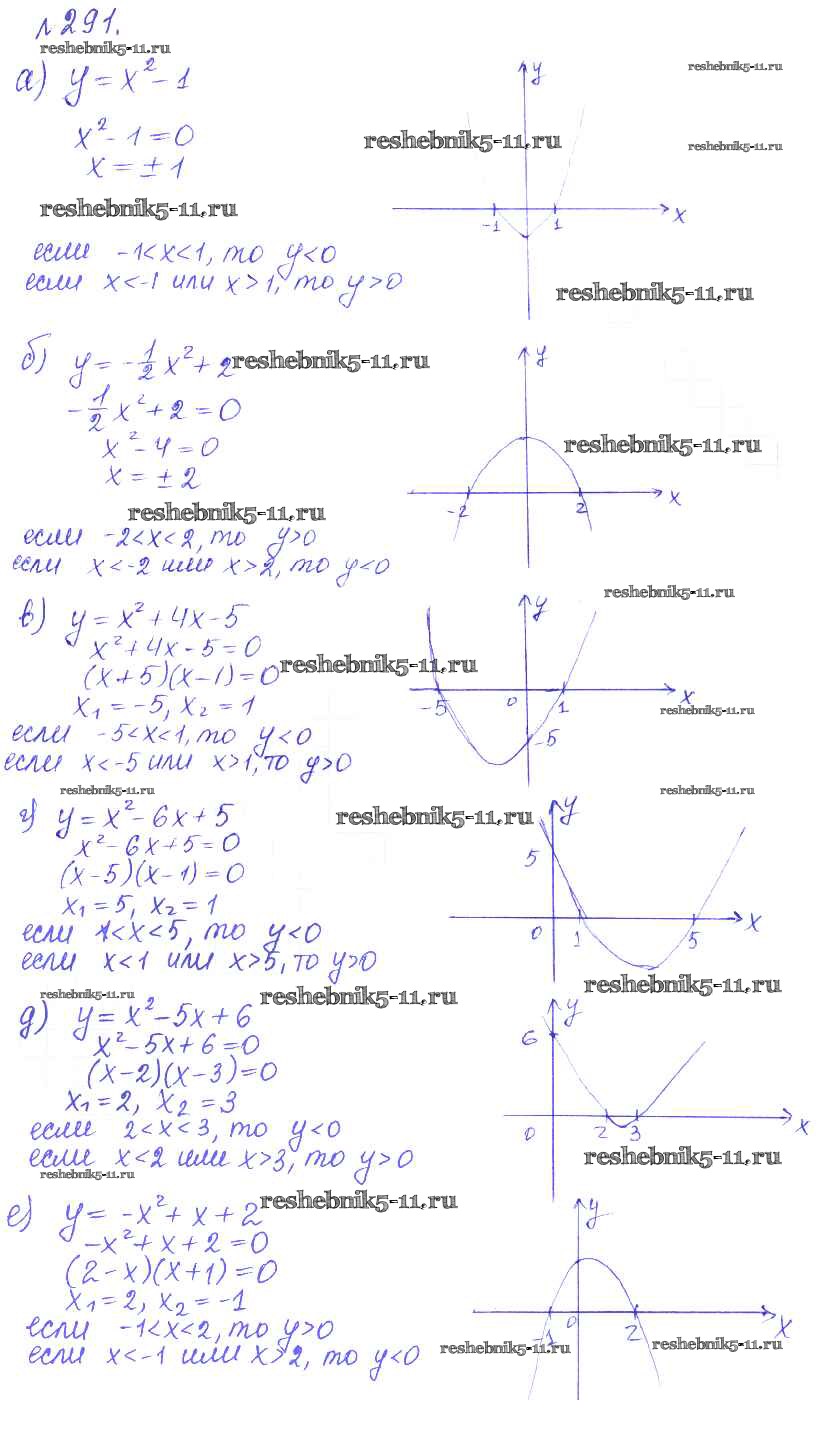 №291.
reshebnik5-11.ru
а) y = x² - 1
reshebnik5-11.ru
y
x² - 1 = 0
reshebnik5-11.ru
reshebnik5-11.ru
x = ± 1
reshebnik5-11.ru
-1 1 x
если -1<x<1, то y<0
если x<-1 или x>1, то y>0
reshebnik5-11.ru
б) y = -1/2 x² + 2
reshebnik5-11.ru
y
-1/2 x² + 2 = 0
x² - 4 = 0
reshebnik5-11.ru
x = ± 2
-2 2 x
reshebnik5-11.ru
если -2<x<2, то y>0
если x<-2 или x>2, то y<0
reshebnik5-11.ru
в) y = x² + 4x - 5
y
x² + 4x - 5 = 0
(x+5)(x-1) = 0
reshebnik5-11.ru
x₁ = -5, x₂ = 1
-5 0 1 x
reshebnik5-11.ru
если -5<x<1, то y<0
-5
если x<-5 или x>1, то y>0
reshebnik5-11.ru
reshebnik5-11.ru
г) y = x² - 6x + 5
reshebnik5-11.ru
y
x² - 6x + 5 = 0
5
(x-5)(x-1) = 0
x₁ = 5, x₂ = 1
0 1 5 x
если 1<x<5, то y<0
если x<1 или x>5, то y>0
reshebnik5-11.ru
reshebnik5-11.ru
reshebnik5-11.ru
д) y = x² - 5x + 6
y
x² - 5x + 6 = 0
6
(x-2)(x-3) = 0
x₁ = 2, x₂ = 3
0 2 3 x
если 2<x<3, то y<0
если x<2 или x>3, то y>0
reshebnik5-11.ru
reshebnik5-11.ru
reshebnik5-11.ru
е) y = -x² + x + 2
y
-x² + x + 2 = 0
(2-x)(x+1) = 0
x₁ = 2, x₂ = -1
-1 0 2 x
если -1<x<2, то y>0
если x<-1 или x>2, то y<0
reshebnik5-11.ru
reshebnik5-11.ru